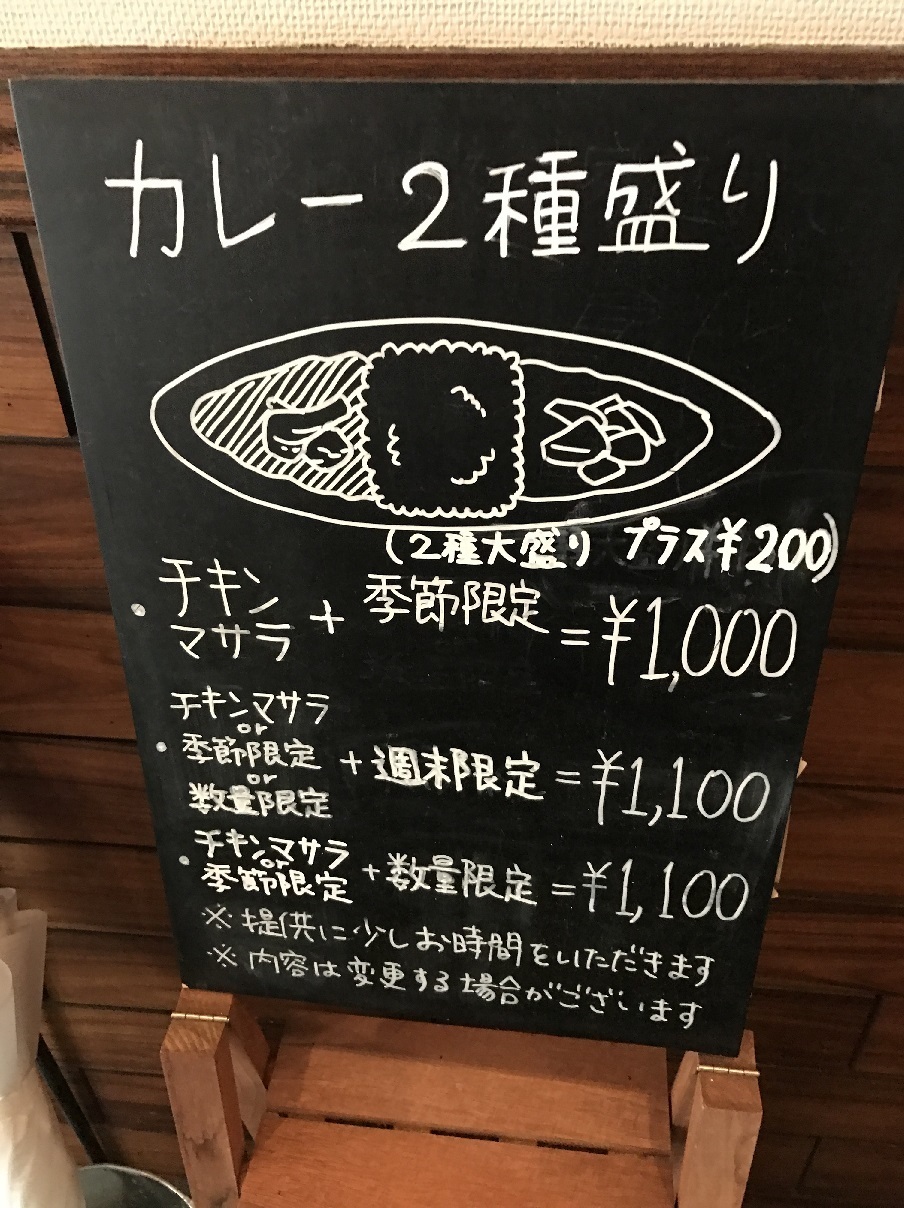 カレー2種盛り
(2種大盛り プラス¥200)
・チキンマサラ + 季節限定 = ¥1,000
チキンマサラ
or
・季節限定 + 週末限定 = ¥1,100
or
数量限定
チキンマサラ
・or + 数量限定 = ¥1,100
季節限定
※ 提供に少しお時間をいただきます
※ 内容は変更する場合がございます